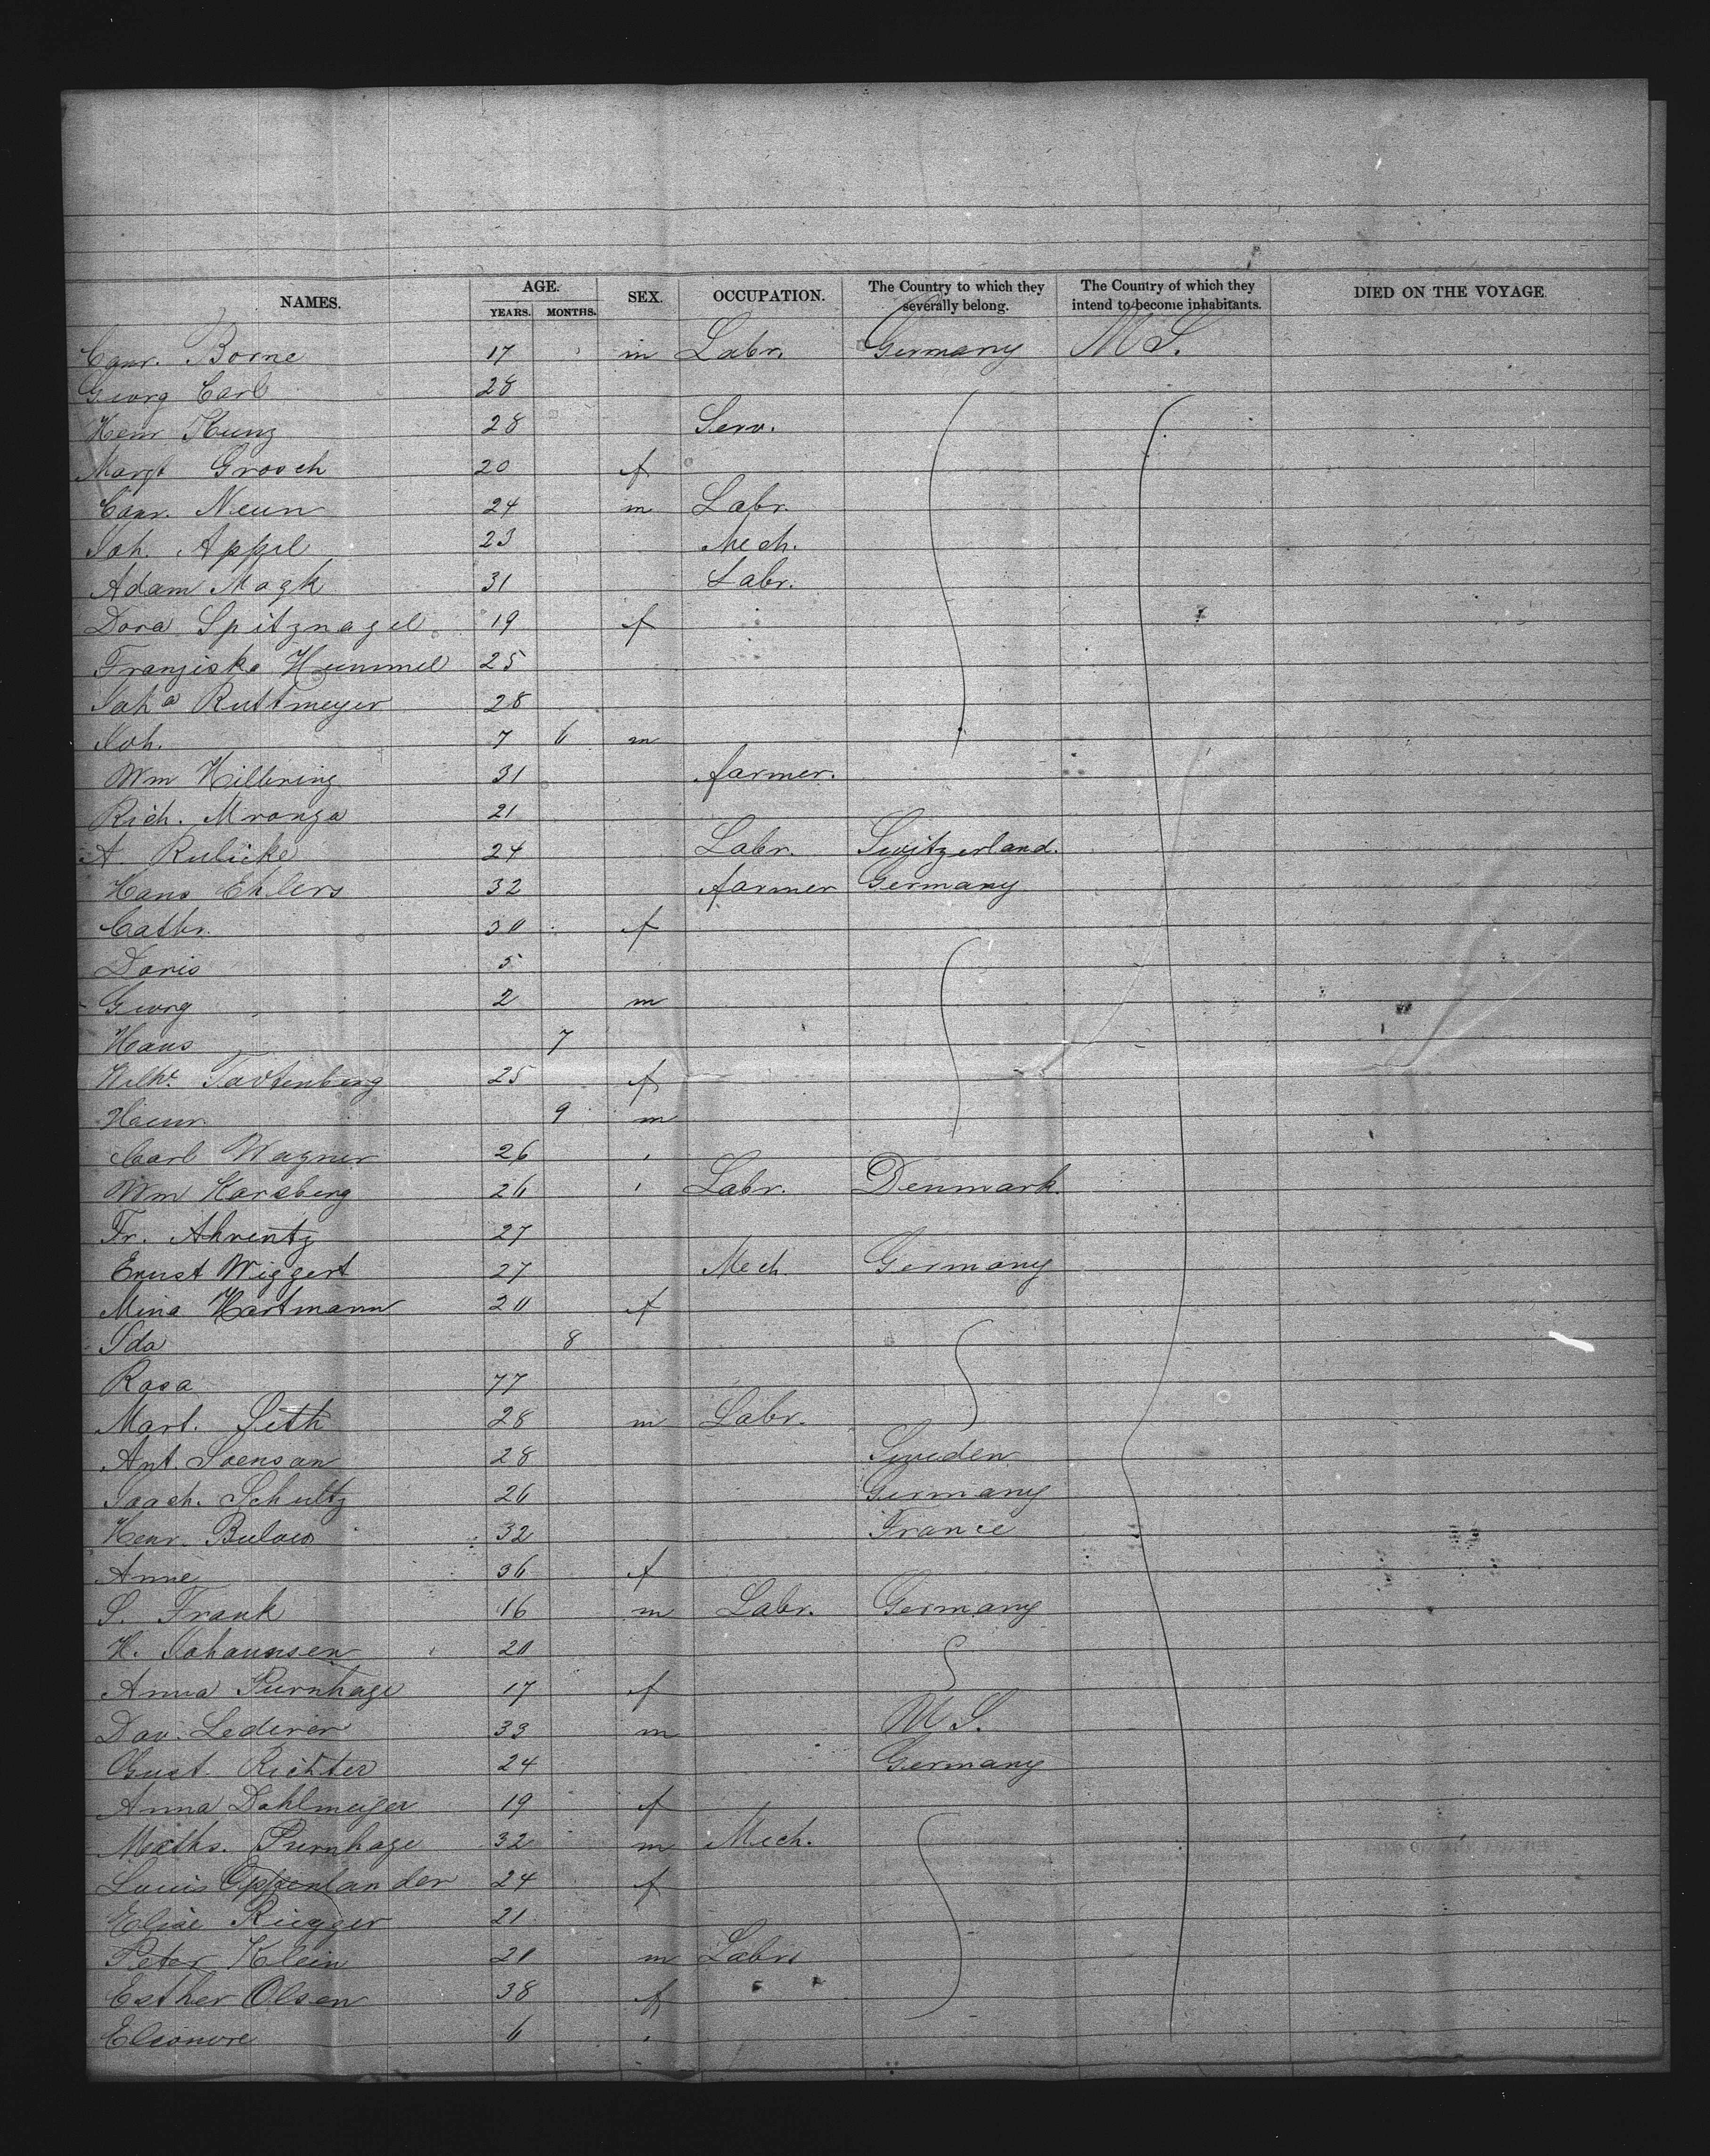 NAMES. AGE. SEX. OCCUPATION. The Country to which they severally belong. The Country of which they intend to become inhabitants. DIED ON THE VOYAGE
YEARS. MONTHS.
Conr. Borne 17 m Labr. Germany U S.
Georg Carl 28
Henr Kunz 28 Serv.
Margt Grosch 20 f
Conr. Neun 24 m Labr.
Joh. Appel 23 Mech.
Adam Magk 31 Labr.
Dora Spitznagel 19 f
Franziska Hummel 25
Joha Ruttmeyer 28
Joh. 7 6 m
Wm Hilbring 31 farmer.
Rich. Mronga 21
A. Rulicke 24 Labr. Switzerland.
Hans Ehlers 32 farmer Germany
Cathr. 30 f
Doris 5
Georg 2 m
Hans 7
Wilhe Tastenberg 25 f
Henr 9 m
Carl Wagner 26
Wm Harsberg 26 Labr. Denmark.
Fr. Ahrentz 27
Ernst Wiggert 27 Mech Germany
Mina Hartmann 20 f
Ida 8
Rosa 77
Mart. Sith 28 m Labr.
Ant. Svensan 28 Sweden
Joach. Schultz 26 Germany
Henr. Bulow 32 France
Anne 36 f
S. Frank 16 m Labr. Germany
H. Johannsen 20
Anna Purnhage 17 f
Dav. Lederer 33 m U S.
Gust. Richter 24 Germany
Anna Dahlmeyer 19 f
Maths. Purnhage 32 m Mech.
Louis Oppenlander 24 f
Elise Riegger 21
Peter Klein 21 m Labr
Esther Olsen 38 f
Eleonore 6